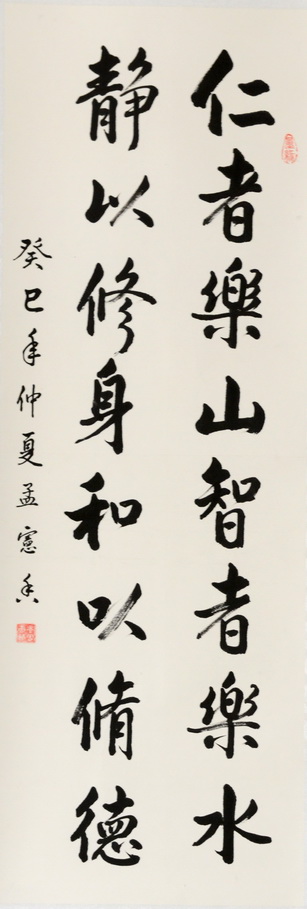 仁者樂山智者樂水
静以修身和以脩德
癸巳年仲夏孟憲香